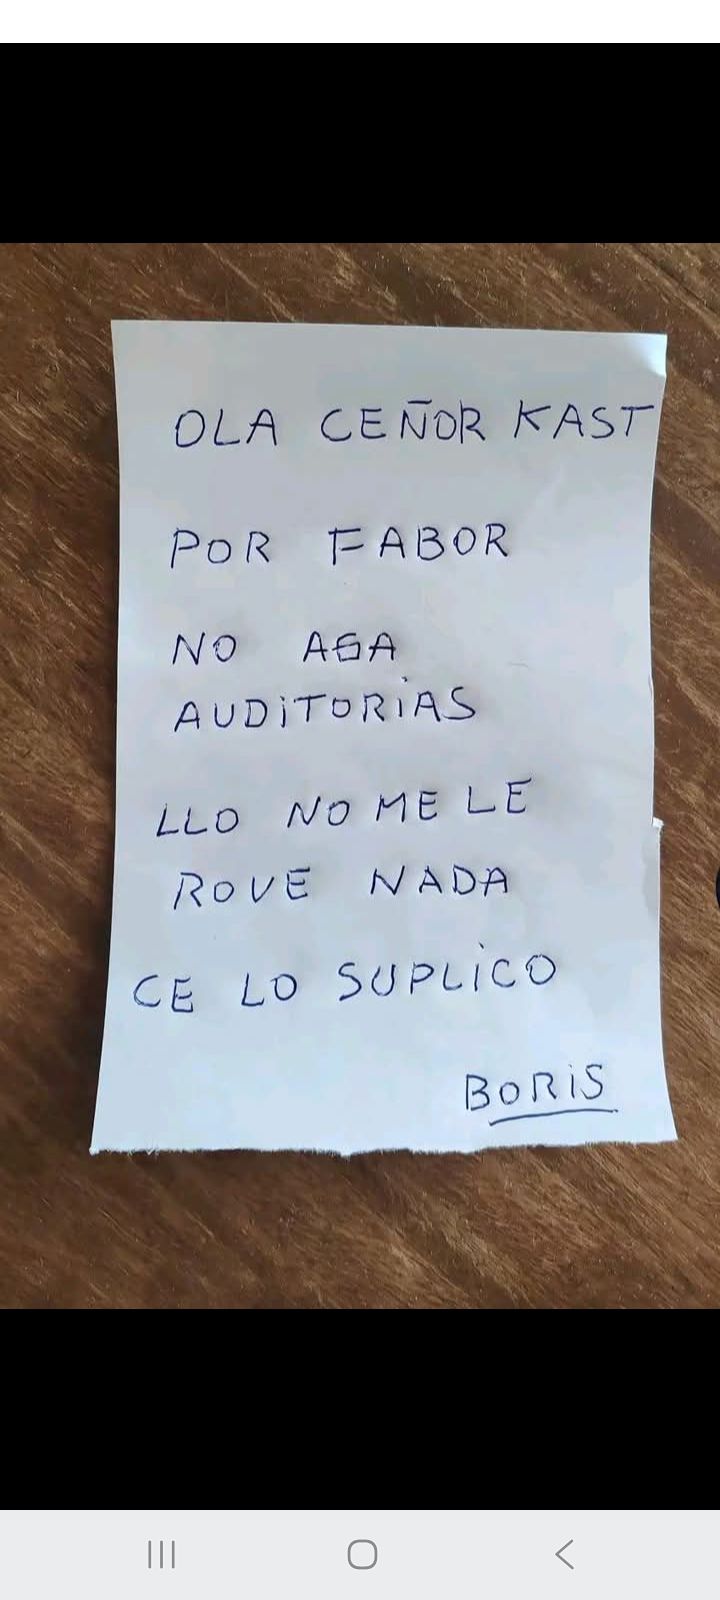 OLA CEÑOR KAST
POR FABOR
NO AGA
AUDITORIAS
LLO NO ME LE
ROVE NADA
CE LO SUPLICO
BORIS